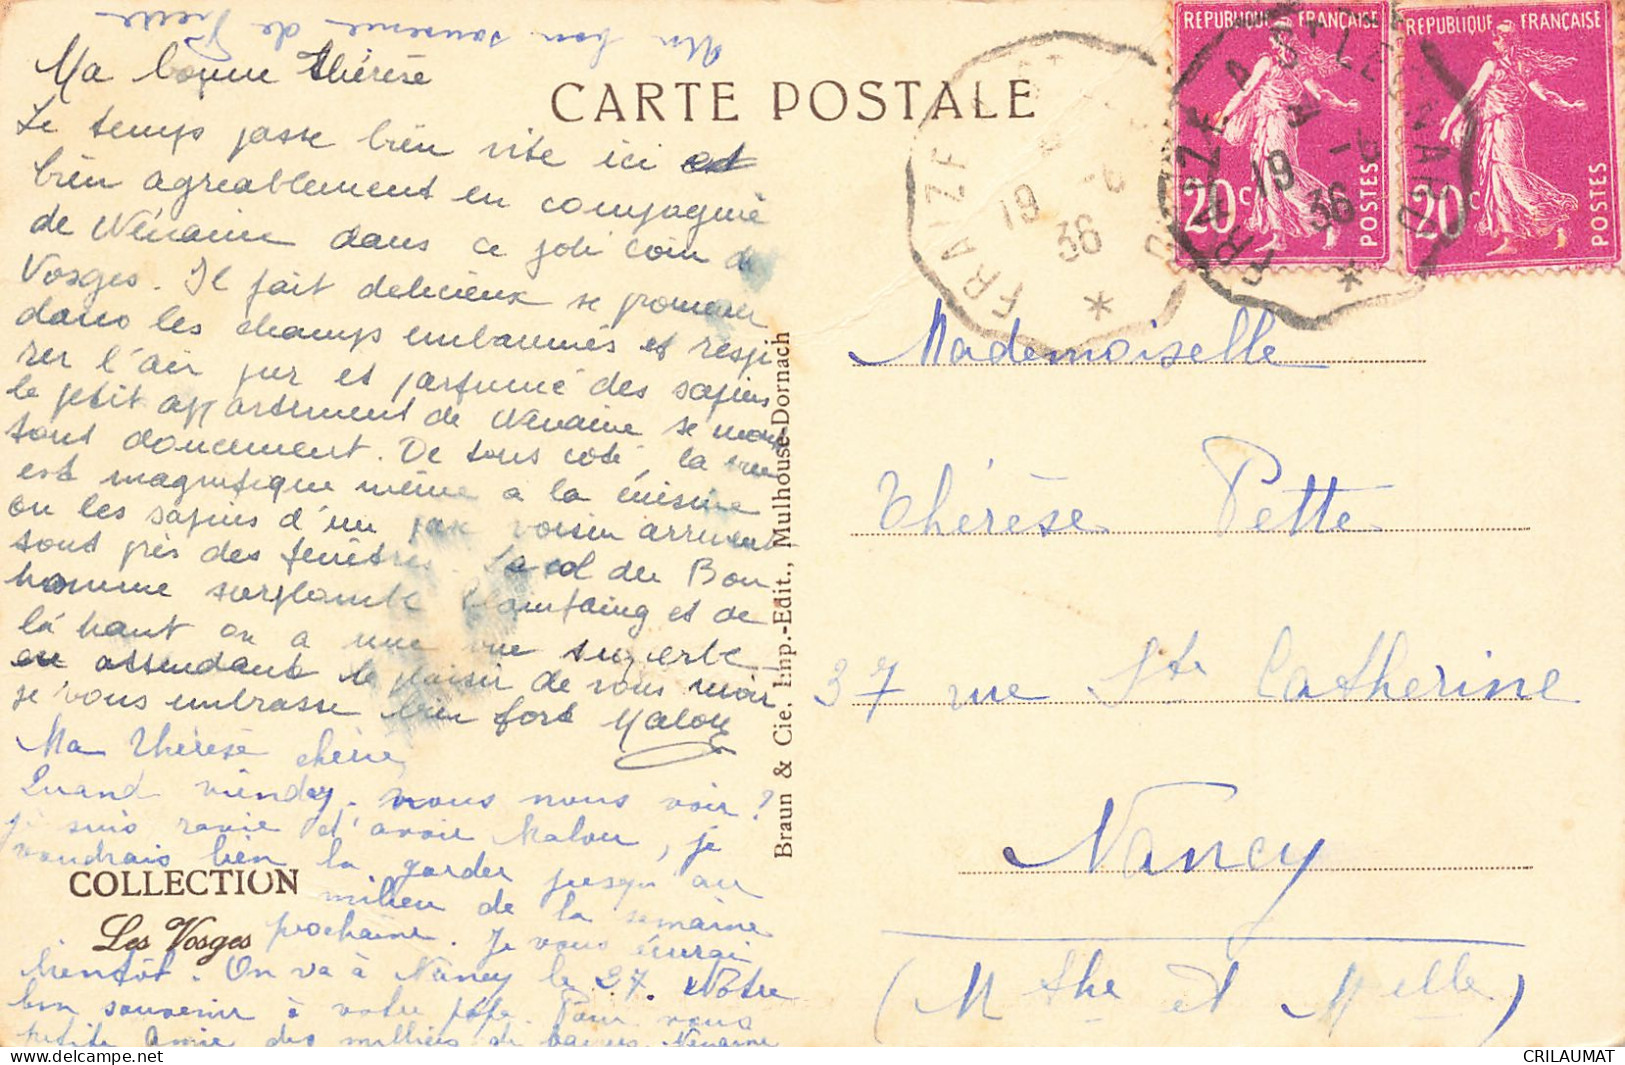 Un bon souvenir de
Ma bonne Thérèse
Le temps passe bien vite ici et
bien agréablement en compagnie
de Nénaine dans ce joli coin de
Vosges. Il fait delicieux se promener
dans les champs embaumés et respi
rer l'air pur et parfumé des sapins
le petit appartement de Nénaine se
tout doucement. De tous coté, la vue
est magnifique même a la cuisine
ou les sapins d'un voisin arrivent
tout près des fenêtres. Le col du Bon
homme surplombe Plainfaing et de
là haut on a une vue superbe
en attendant le plaisir de vous revoir
je vous embrasse bien fort Malou
Ma Thérèse chérie,
Quand viendez-vous nous voir ?
Je suis ravie d'avoir Malou, je
voudrais bien la garder jusqu'au
milieu de la semaine
prochaine. Je vous écrirai
bientôt. On va à Nancy le 27. Notre
bon souvenir à votre papa. Pour vous
petite amie des milliers de baisers. Nénaine
COLLECTION
Les Vosges
CARTE POSTALE
Braun & Cie, Imp.-Edit., Mulhouse-Dornach
REPUBLIQUE FRANÇAISE
20c
POSTES
REPUBLIQUE FRANÇAISE
20c
POSTES
FRAIZE
19 -6
36
FRAIZE A ST LEONARD
19 -6
36
Mademoiselle
Thérèse Pette
37 rue Ste Catherine
Nancy
(Mthe et Melle)
CRILAUMAT